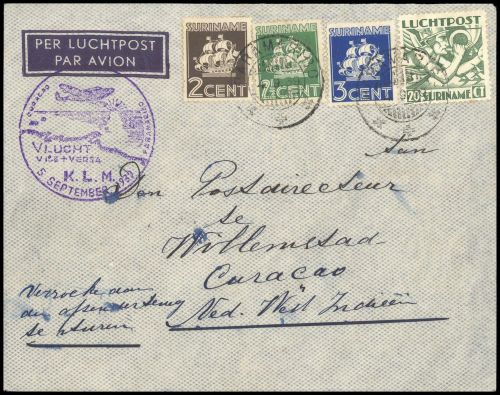 PER LUCHTPOST
PAR AVION
SURINAME
2 CENT
SURINAME
2½ CENT
SURINAME
3 CENT
LUCHTPOST
20 SURINAME CT
CURAÇAO
PARAMARIBO
VLUCHT
VICE + VERSA
K.L.M.
5 SEPTEMBER
Aan
Den Postdirecteur
te
Willemstad-
Curacao
Ned. West Indieën
Verzoeke aan
den afzender terug
te sturen